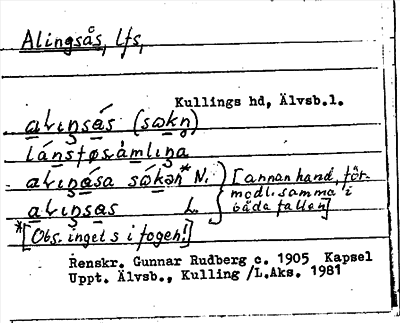 Alingsås, lfs,
Kullings hd, Älvsb.l.
alıŋsås (sωkn̥)
lánsførsåmlıŋa
alıŋåsa sωkən* N. } [annan hand, för-
modl. samma i
alıŋsas L. båda fallen]
*[Obs. inget s i fogen!]
Renskr. Gunnar Rudberg c. 1905 Kapsel
Uppt. Älvsb., Kulling /L.Aks. 1981